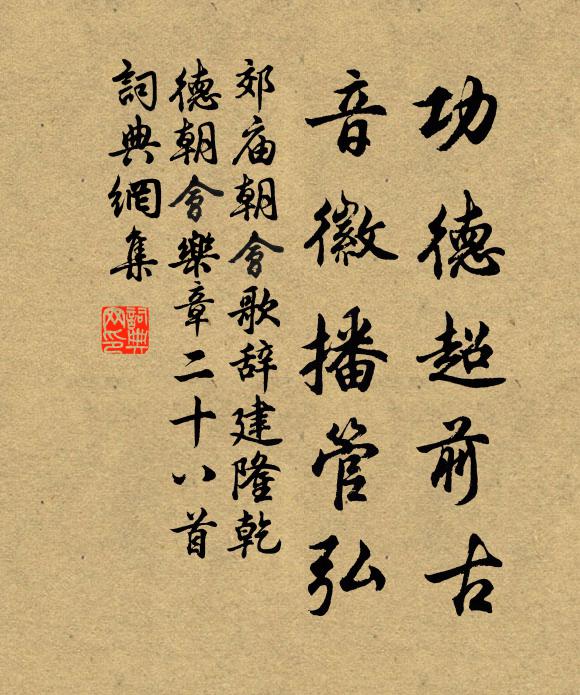 功德超前古
音徽播管弘
郊庙朝會歌辞建隆乾
德朝會樂章二十八首
詞典網集
詞典网印